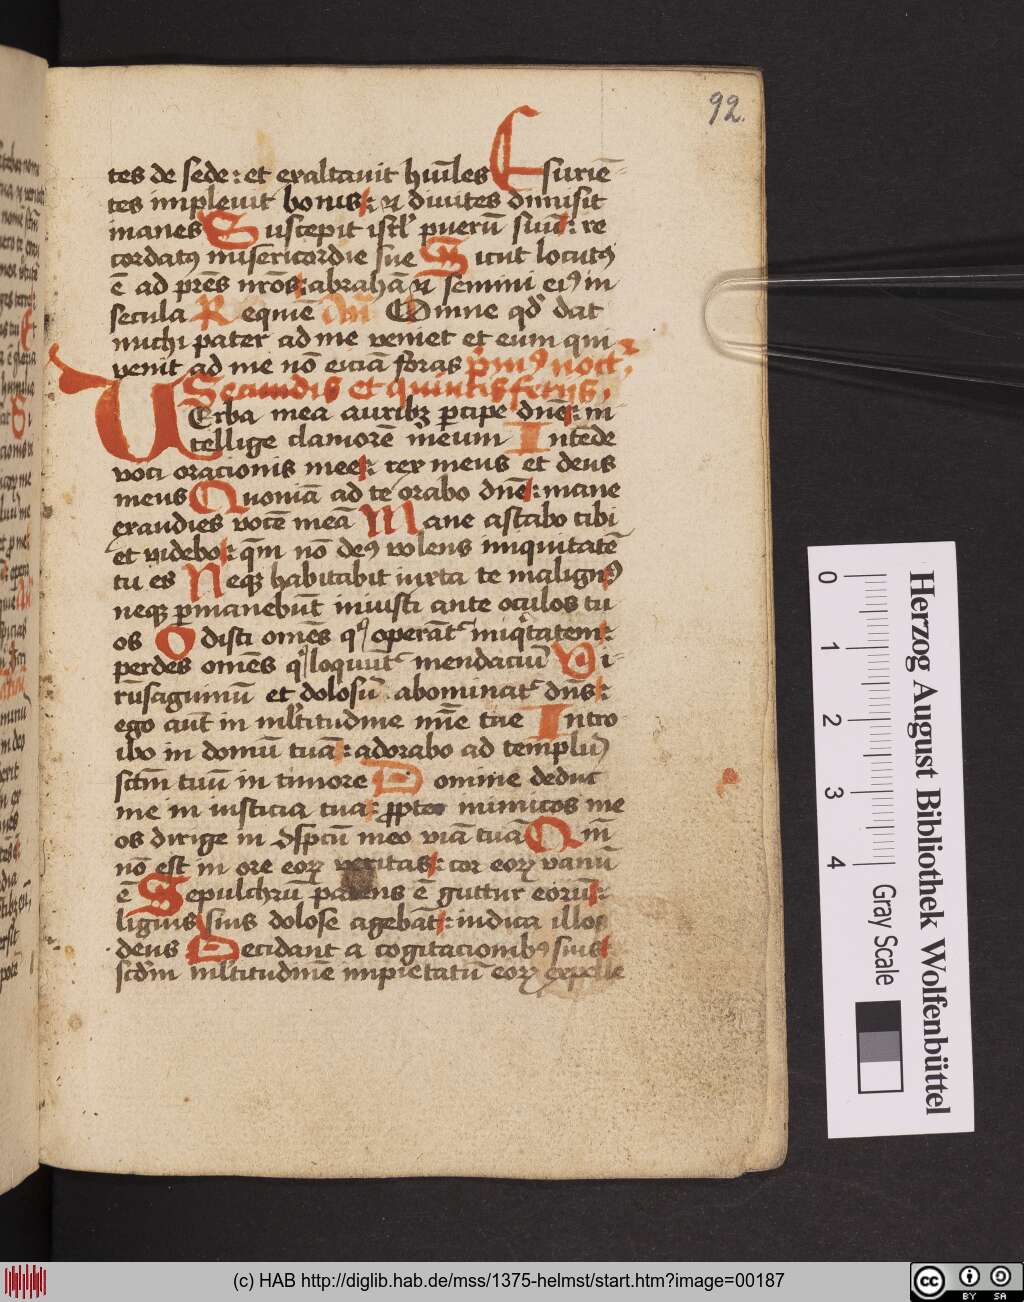 92.
tes de sede: et exaltauit hūiles Esuriē-
tes impleuit bonis: et diuites dimisit
inanes Suscepit isrl' puerū suū: re
cordatꝰ misericordie sue Sicut locutꝰ
ē ad prēs nr̄os: abrahā et semini eiꝰ in
secula Requiē Añ Omne qd' dat
michi pater ad me veniet et eum qui
venit ad me nō eiciā foras
Secundis et quintis ferijs,
Verba mea auribꝫ ꝑcipe dn̄e: in
tellige clamorē meum Intēde
voci oracionis mee: rex meus et deus
meus Quoniā ad te orabo dn̄e: mane
exaudies vocē meā Mane astabo tibi
et videbo: qm̄ nō deꝰ volens iniquitatē
tu es Neqꝫ habitabit iuxta te malignꝰ
neqꝫ ꝑmanebūt iniusti ante oculos tu
os Odisti om̄es qⁱ operāt᷑ iniqⁱtatem:
perdes om̄es qⁱ loquūt᷑ mendaciū Vi-
rū sāguinū et dolosū abominat᷑ dn̄s:
ego aūt in ml'titudine mīe tue Intro
ibo in domū tuā: adorabo ad templū
sctm̄ tuū in timore Domine deduc
me in iusticia tua: ꝓpter inimicos me
os dirige in ꝯspcū meo viā tuā Qm̄
nō est in ore eoꝝ veritas: cor eoꝝ vanū
ē Sepulchrū patens ē guttur eorū:
liguis suis dolose agebāt: iudica illos
deus Decidant a cogitacionibꝰ suis
scdm̄ ml'titudinē impietatū eoꝝ expelle
0 1 2 3 4
Gray Scale
Herzog August Bibliothek Wolfenbüttel
(c) HAB http://diglib.hab.de/mss/1375-helmst/start.htm?image=00187
cc BY SA